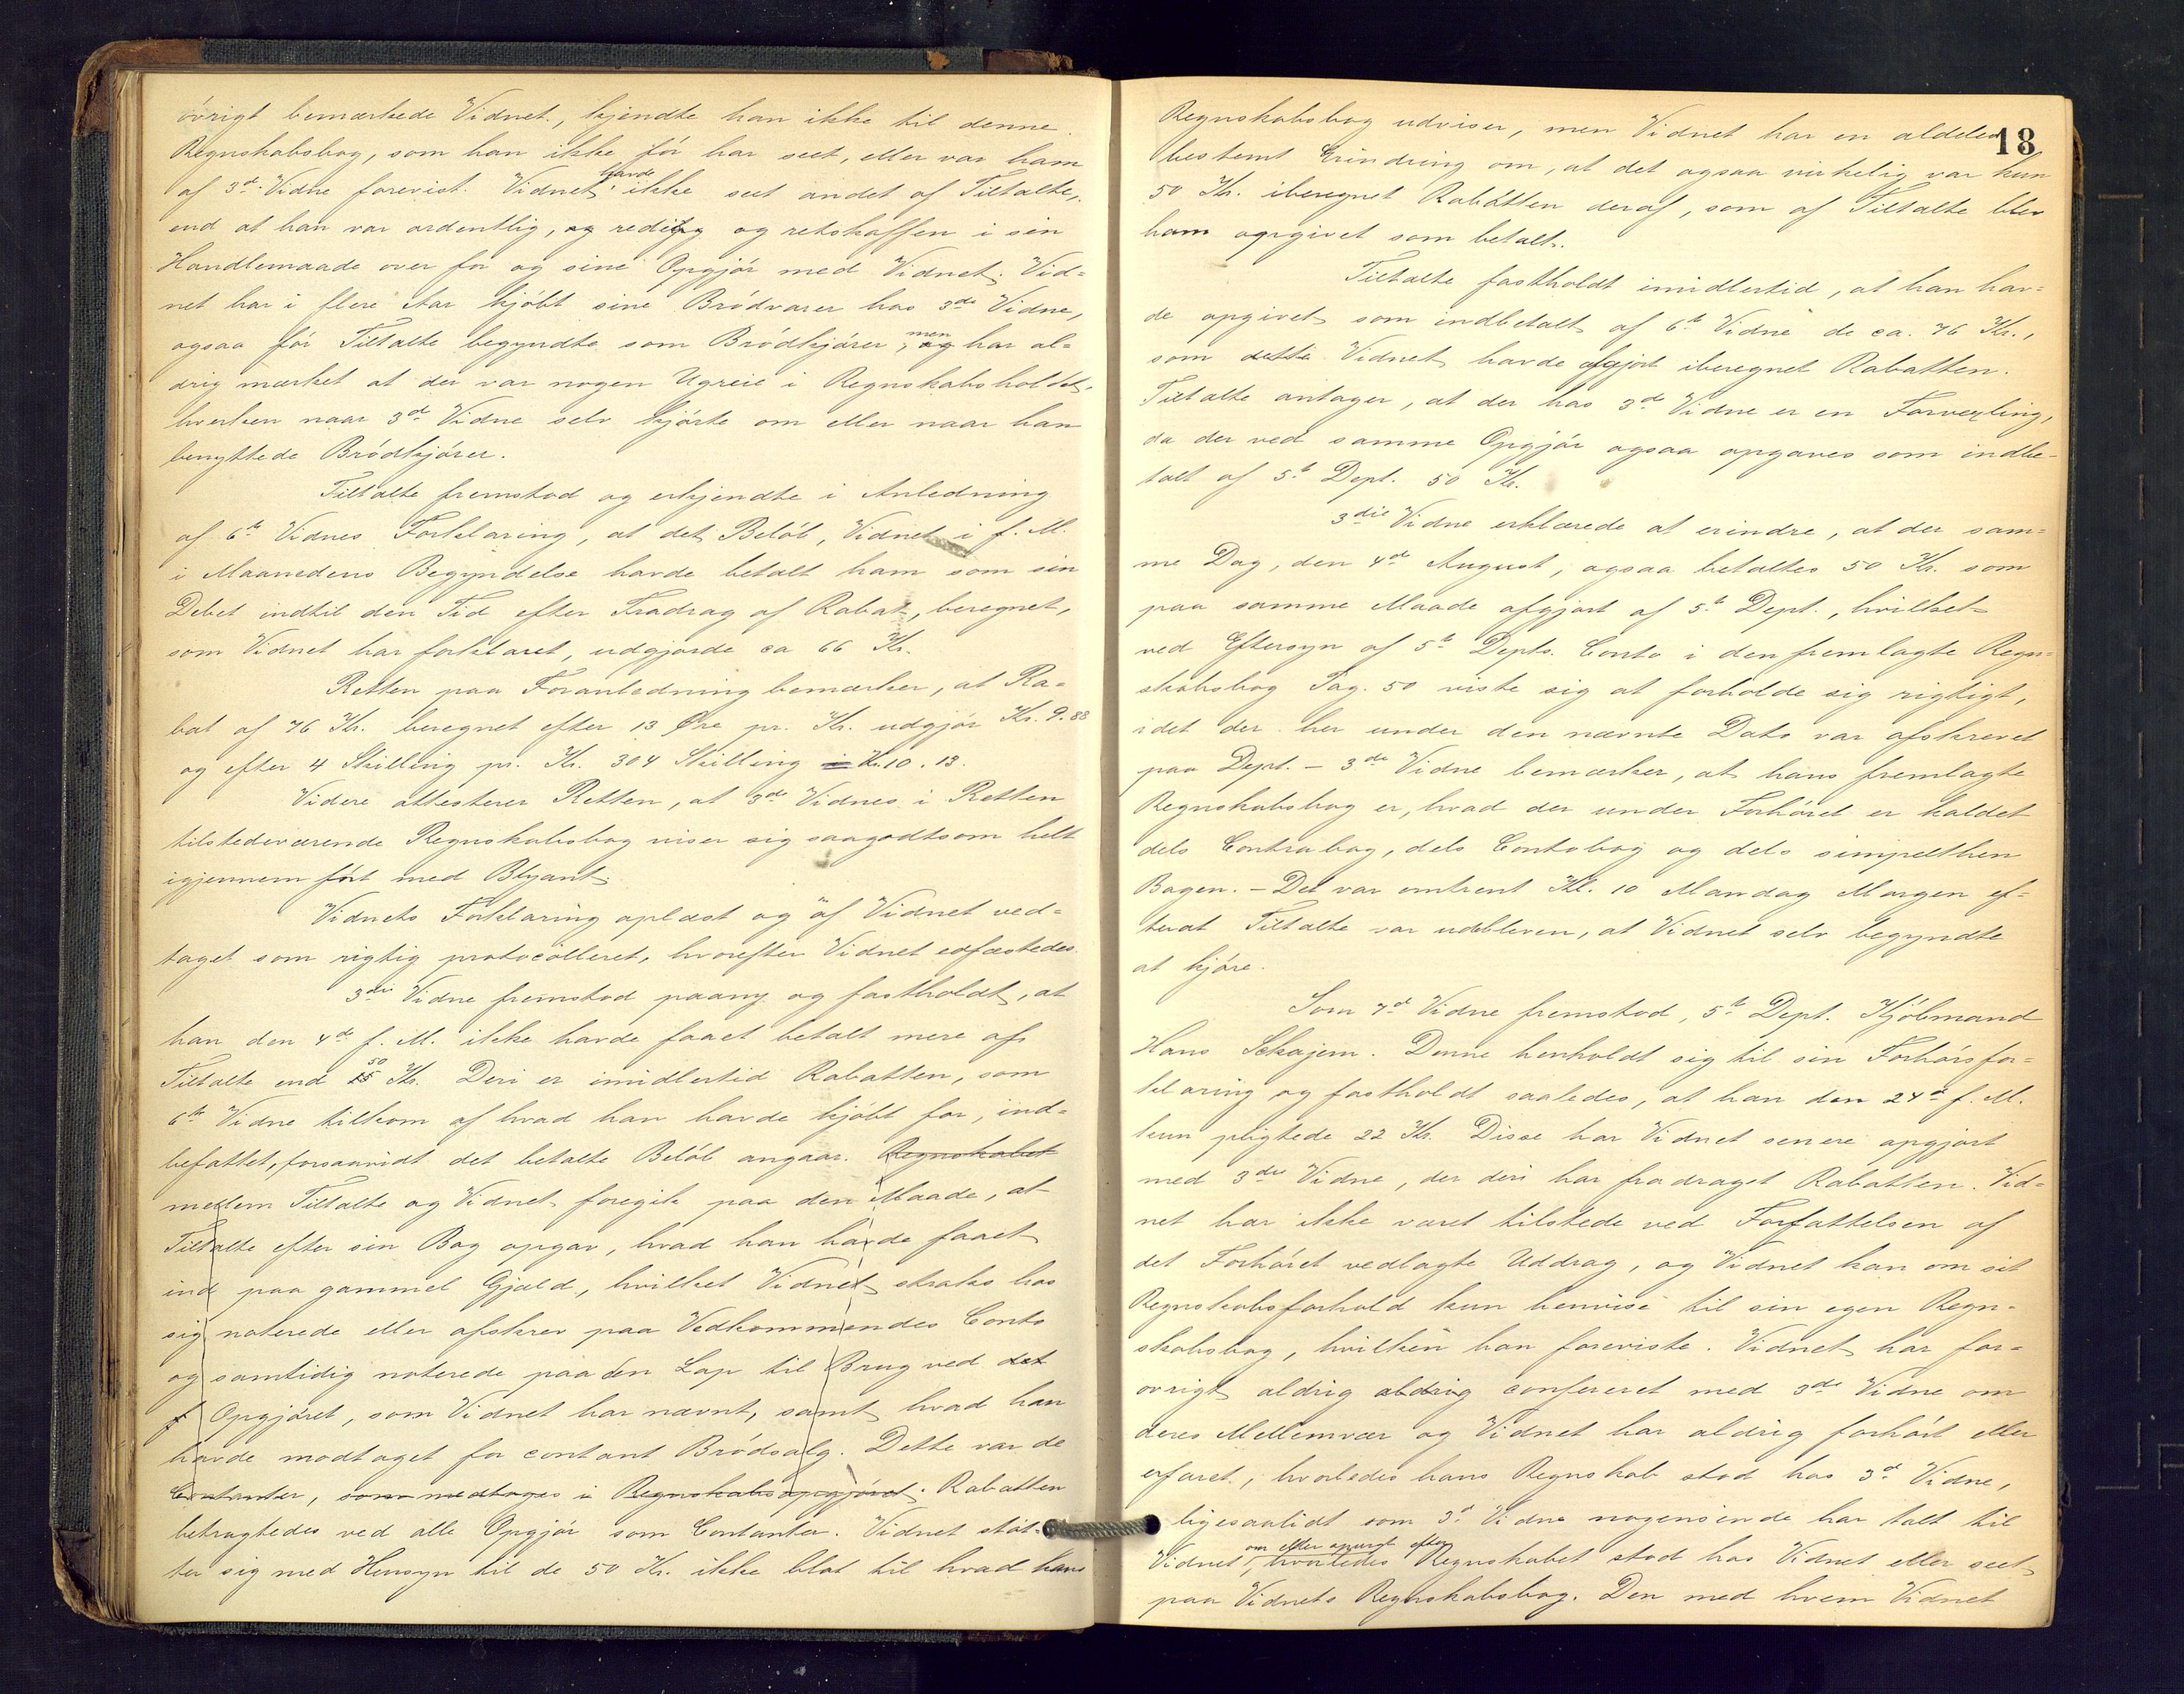 övrigt bemærkede Vidnet, kjendte han ikke til denne
Regnskabsbog, som han ikke för har seet, eller var ham
af 3d. Vidne forevist. Vidnet havde ikke seet andet af Tiltalte,
end at han var ordentlig, og redig og retskaffen i sin
Handlemaade over for og sine Opgjör med Vidnet. Vid=
net har i flere Aar kjöbt sine Brödvarer hos 3de Vidne,
ogsaa för Tiltalte begyndte som Brödkjörer, og men har al=
drig mærket at der var nogen Ugreie i Regnskabsholdet,
hverken naar 3d Vidne selv kjörte om eller naar han
benyttede Brödkjörer.
Tiltalte fremstod og erkjendte i Anledning
af 6te Vidnes Forklaring, at det Belöb, Vidnet i f. M.
i Maanedens Begyndelse havde betalt ham som sin
Debet indtil den Tid efter Fradrag af Rabat, beregnet,
som Vidnet har forklaret, udgjorde ca 66 Kr.
Retten paa Foranledning bemærker, at Ra=
bat af 76 Kr. beregnet efter 13 Øre pr. Kr. udgjör Kr. 9.88
og efter 4 Skilling pr. Kr. 304 Skilling = Kr. 10.13.
Videre attesterer Retten, at 3de Vidnes i Retten
tilstedeværende Regnskabsbog viser sig saagodtsom helt
igjennem fört med Blyant.
Vidnets Forklaring oplæst og af Vidnet ved=
taget som rigtig protocolleret, hvorefter Vidnet edfæstedes.
3die Vidne fremstod paany og fastholdt, at
han den 4de f. M. ikke havde faaet betalt mere af
Tiltalte end 50 Kr. Deri er imidlertid Rabatten, som
6te Vidne tilkom af hvad han havde kjöbt for, ind=
befattet, forsaavidt det betalte Belöb angaar. Regnskabet
mellem Tiltalte og Vidnet foregik paa den Maade, at
Tiltalte efter sin Bog opgav, hvad han havde faaet
ind paa gammel Gjæld, hvilket Vidnet straks hos
sig noterede eller afskrev paa Vedkommendes Conto
og samtidig noterede paa den Lap til Brug ved det
Opgjöret, som Vidnet har nævnt, samt hvad han
havde modtaget for contant Brödsalg. Dette var de
Contanter, som medtoges i Regnskabsopgjöret. Rabatten
betragtedes ved alle Opgjör som Contanter. Vidnet stöt=
ter sig med Hensyn til de 50 Kr. ikke blot til hvad hans
18
Regnskabsbog udviser, men Vidnet har en aldeles
bestemt Erindring om, at det ogsaa virkelig var kun
50 Kr. iberegnet Rabatten deraf, som af Tiltalte blev
ham opgivet som betalt.
Tiltalte fastholdt imidlertid, at han hav=
de opgivet som indbetalt af 6te Vidne de ca. 76 Kr.,
som dette Vidnet havde afgjort iberegnet Rabatten.
Tiltalte antager, at der hos 3de Vidne er en Forvexling,
da der ved samme Opgjör ogsaa opgaves som indbe=
talt af 5te Dept. 50 Kr.
3die Vidne erklærede at erindre, at der sam=
me Dag, den 4de August, ogsaa betaltes 50 Kr. som
paa samme Maade afgjort af 5te Dept., hvilket
ved Eftersyn af 5te Depts. Conto i den fremlagte Regn=
skabsbog Pag. 50 viste sig at forholde sig rigtigt,
idet der her under den nævnte Dato var afskrevet
paa Dept. – 3de Vidne bemærker, at hans fremlagte
Regnskabsbog er, hvad der under Forhöret er kaldet
dels Contrabog, dels Contobog og dels simpelthen
Bogen. – Det var omtrent Kl. 10 Mandag Morgen ef=
terat Tiltalte var udebleven, at Vidnet selv begyndte
at kjöre.
Som 7de Vidne fremstod, 5te Dept. Kjöbmand
Hans Skajem. Denne henholdt sig til sin Forhörsfor=
klaring og fastholdt saaledes, at han den 24de f. M.
kun pligtede 22 Kr. Disse har Vidnet senere opgjort
med 3die Vidne, der deri har fradraget Rabatten. Vid=
net har ikke været tilstede ved Forfattelsen af
det Forhöret vedlagte Uddrag, og Vidnet kan om sit
Regnskabsforhold kun henvise til sin egen Regn=
skabsbog, hvilken han foreviste. Vidnet har for=
övrigt aldrig aldrig confereret med 3de Vidne om
deres Mellemvær og Vidnet har aldrig forhört eller
erfaret, hvorledes hans Regnskab stod hos 3d Vidne,
ligesaalidt som 3d Vidne nogensinde har talt til
Vidnet om eller spurgt efter, hvorledes Regnskabet stod hos Vidnet eller seet
paa Vidnets Regnskabsbog. Den med hvem Vidnet